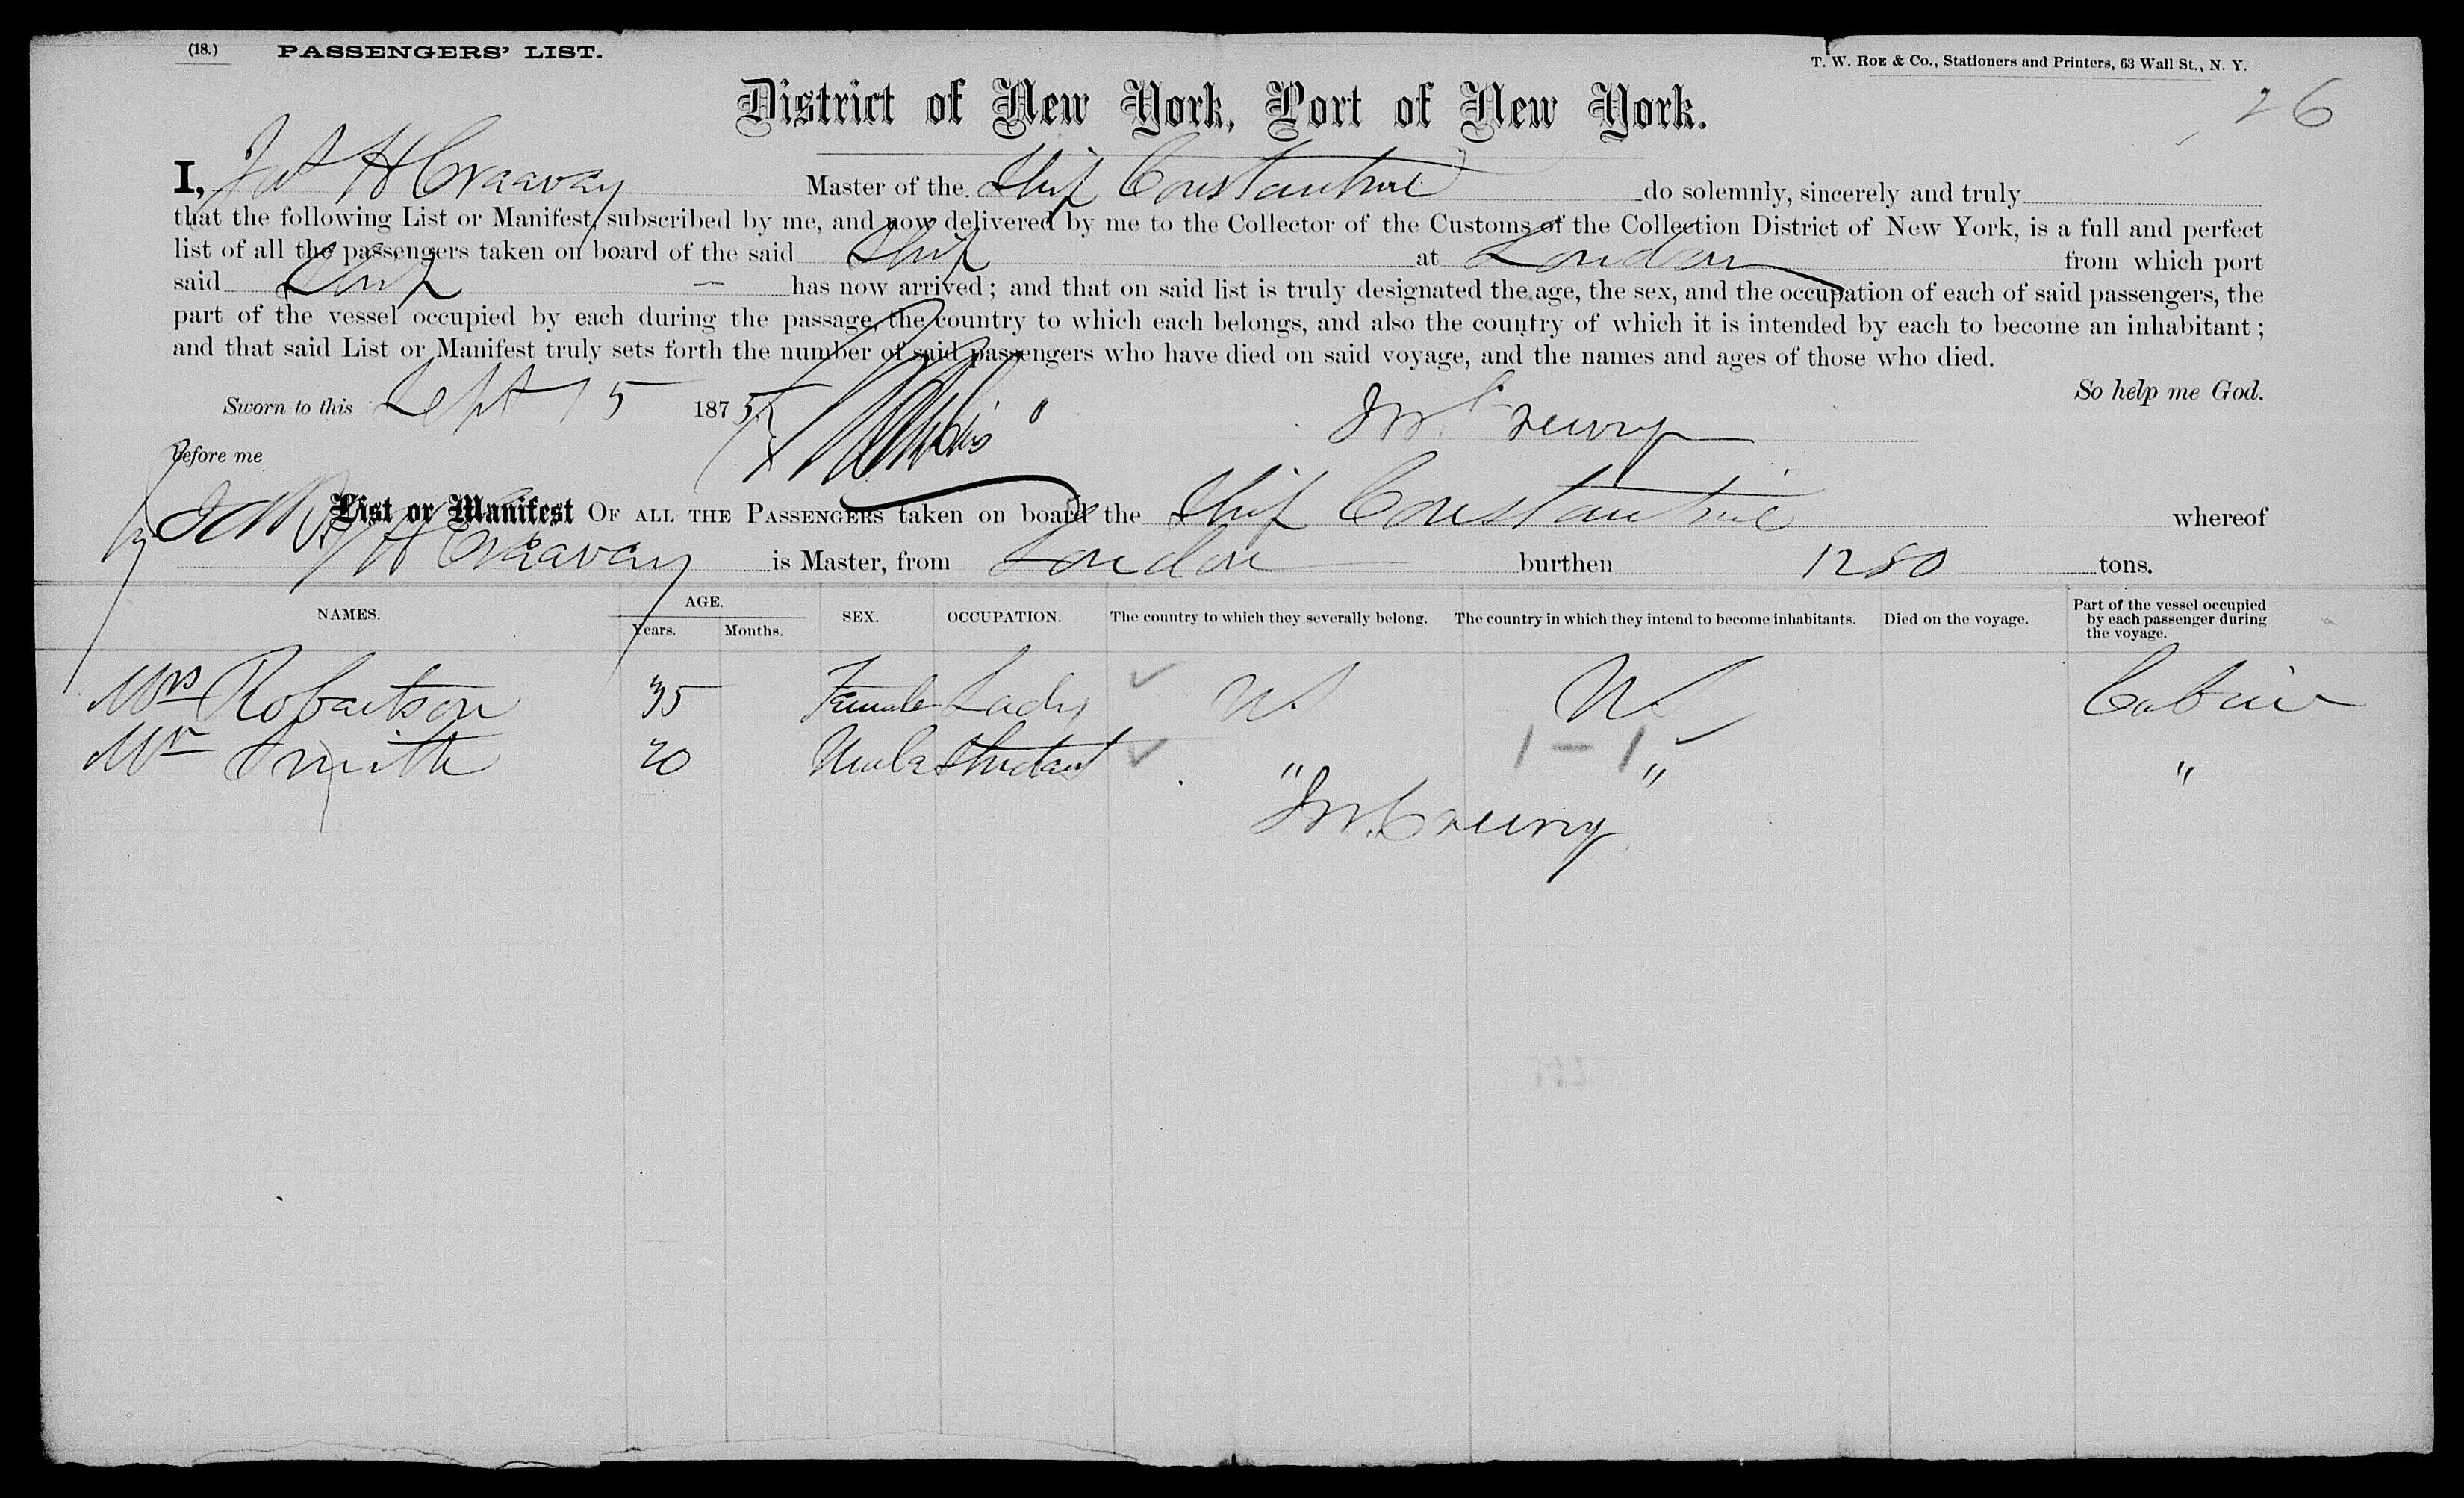 (18.) PASSENGERS' LIST.
T. W. Roe & Co., Stationers and Printers, 63 Wall St., N. Y.
26
District of New York, Port of New York.
I, Jas H Master of the Ship Constantine do solemnly, sincerely and truly
that the following List or Manifest, subscribed by me, and now delivered by me to the Collector of the Customs of the Collection District of New York, is a full and perfect
list of all the passengers taken on board of the said Ship at London from which port
said Ship has now arrived; and that on said list is truly designated the age, the sex, and the occupation of each of said passengers, the
part of the vessel occupied by each during the passage, the country to which each belongs, and also the country of which it is intended by each to become an inhabitant;
and that said List or Manifest truly sets forth the number of said passengers who have died on said voyage, and the names and ages of those who died.
So help me God.
Sworn to this Sept 15 1875
Before me
List or Manifest OF ALL THE PASSENGERS taken on board the Ship Constantine whereof
is Master, from London burthen 1280 tons.
NAMES. AGE. Years. Months. SEX. OCCUPATION. The country to which they severally belong. The country in which they intend to become inhabitants. Died on the voyage. Part of the vessel occupied by each passenger during the voyage.
Mrs Robertson 35 Female Lady Cabin
Mr Smith 20 Male Student " " "
1 - 1